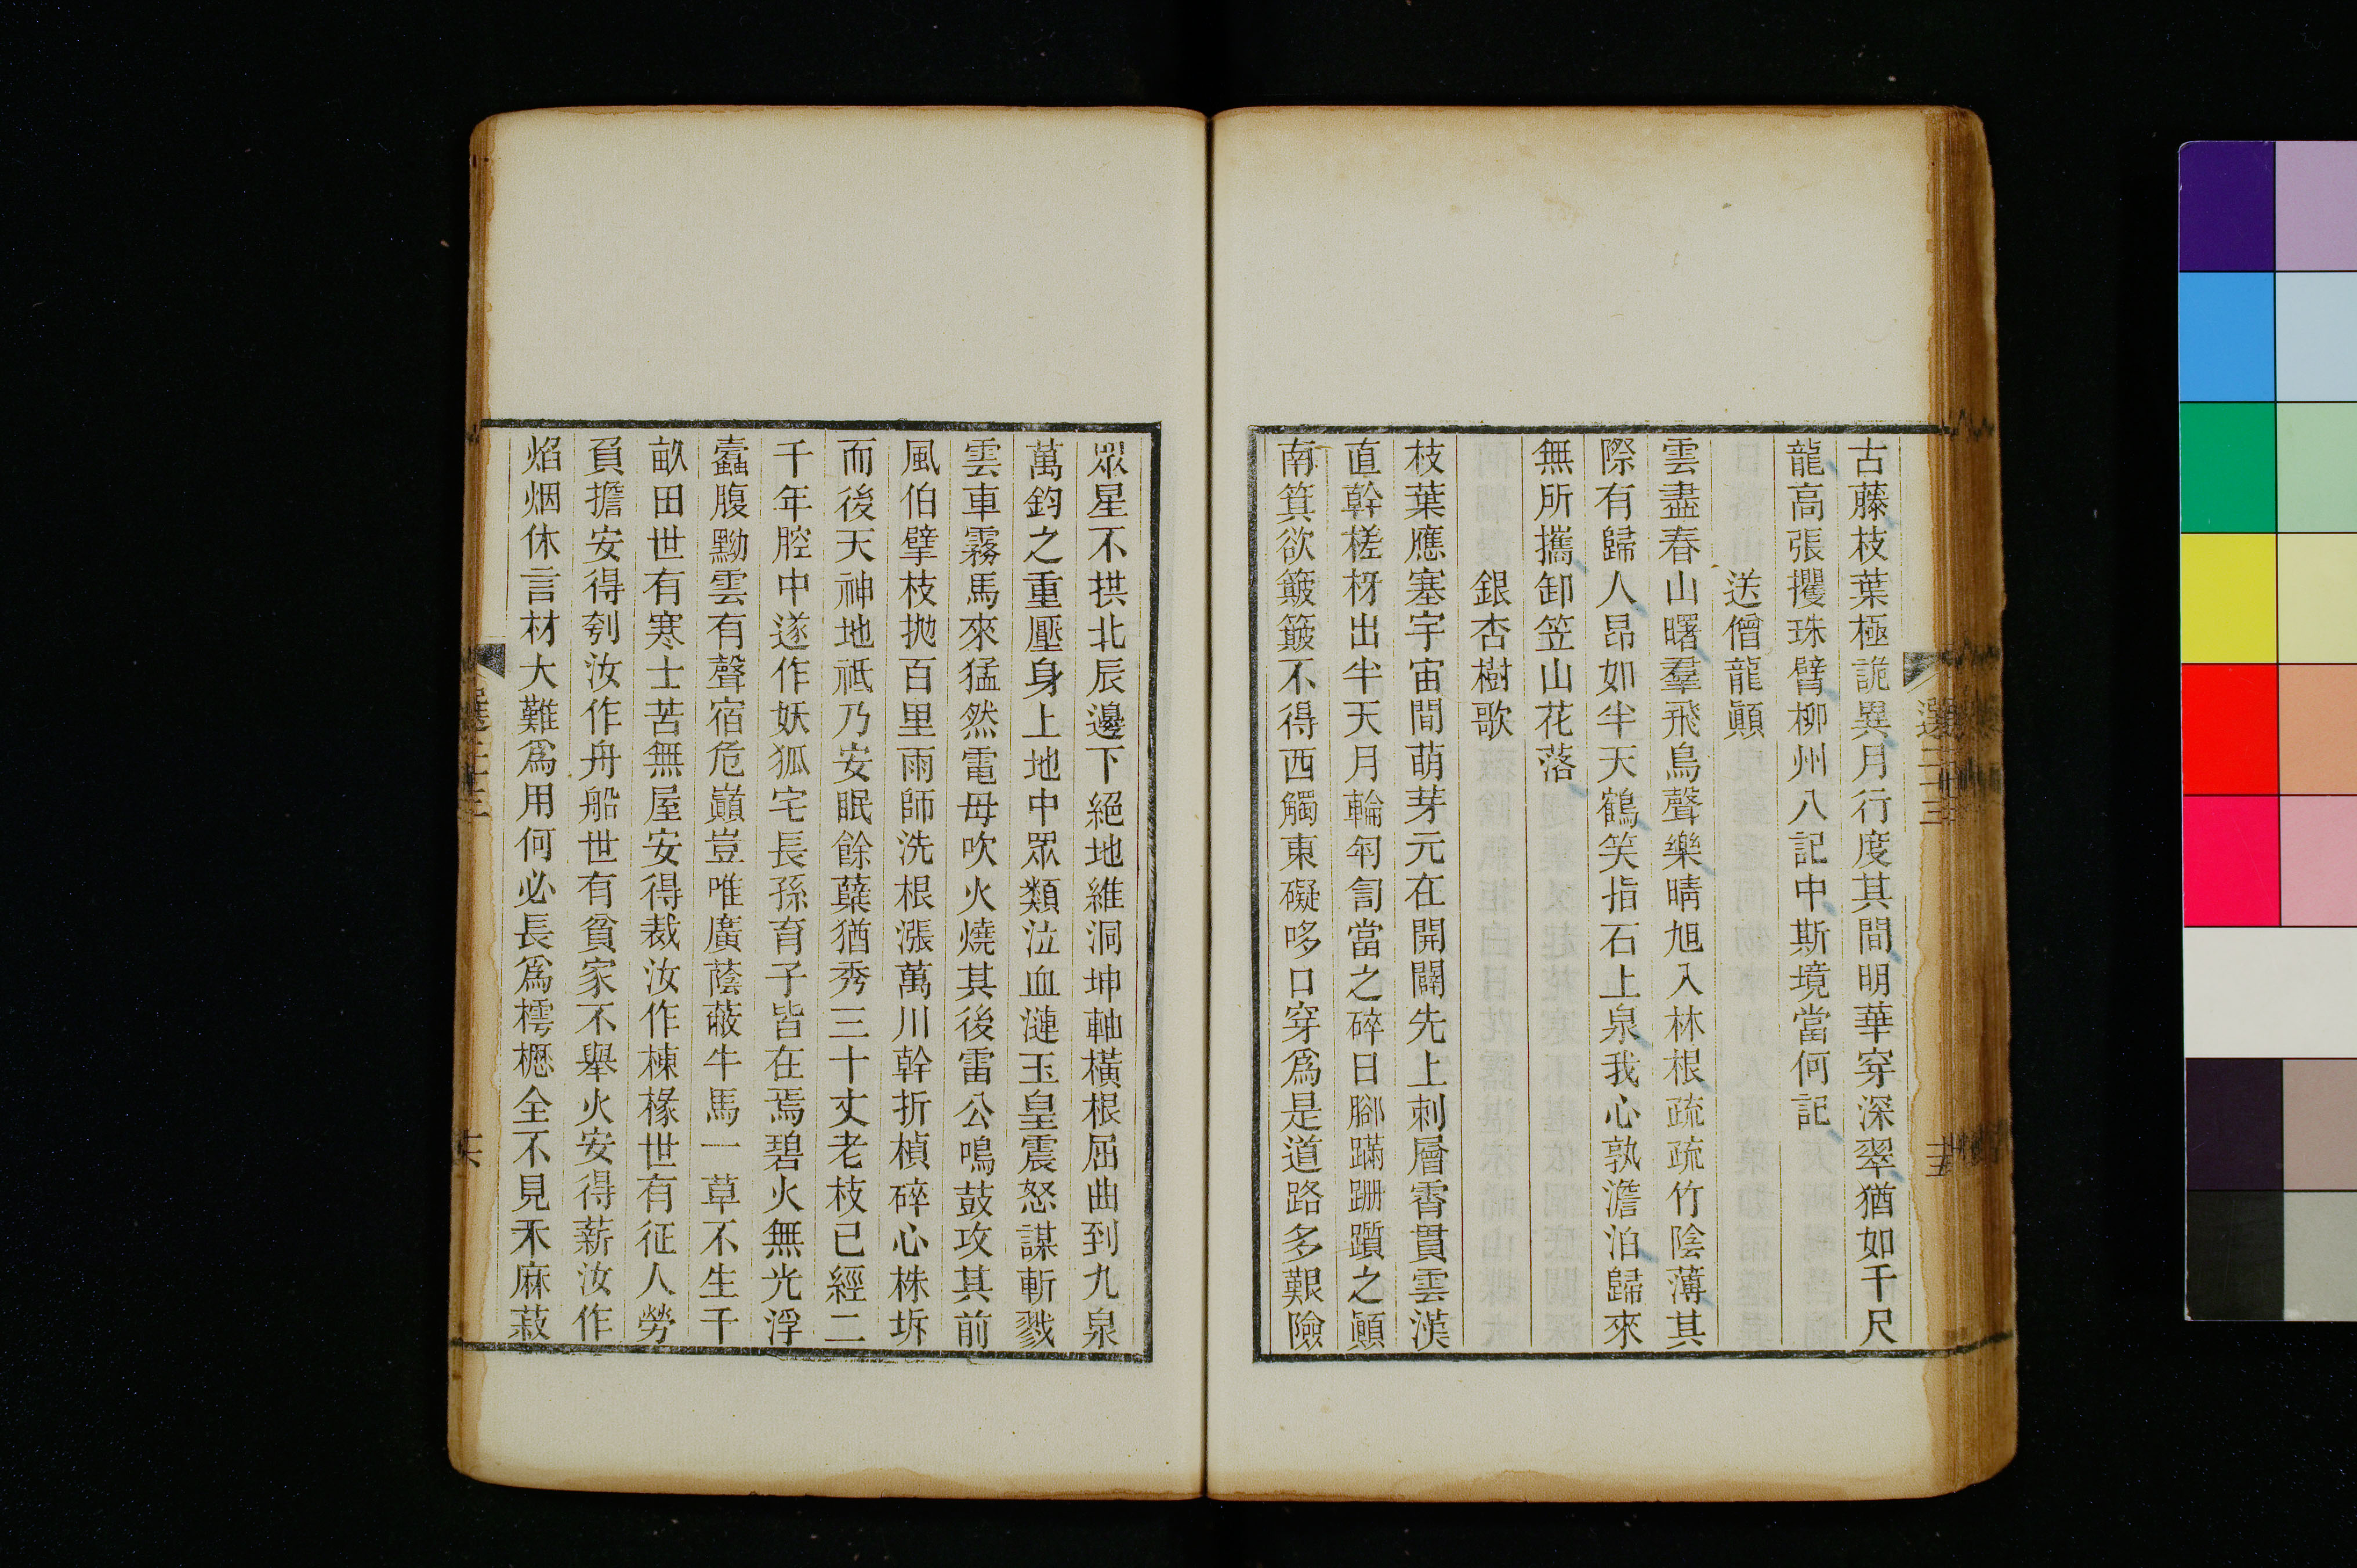 古藤枝葉極詭異月行度其間明華穿深翠猶如千尺
龍高張攫珠臂柳州八記中斯境當何記
送僧龍顚
雲盡春山曙羣飛鳥聲樂晴旭入林根疏疏竹陰薄其
際有歸人昂如半天鶴笑指石上泉我心孰澹泊歸來
無所攜卸笠山花落
銀杏樹歌
枝葉應塞宇宙間萌芽元在開闢先上刺層霄貫雲漢
直幹槎枒出半天月輪匌匒當之碎日腳蹣跚躓之顚
南箕欲簸簸不得西觸東礙哆口穿爲是道路多艱險
眾星不拱北辰邊下絕地維洞坤軸橫根屈曲到九泉
萬鈞之重壓身上地中眾類泣血漣玉皇震怒謀斬戮
雲車霧馬來猛然電母吹火燒其後雷公鳴鼓攻其前
風伯擘枝拋百里雨師洗根漲萬川幹折楨碎心株坼
而後天神地祇乃安眠餘蘖猶秀三十丈老枝已經二
千年腔中遂作妖狐宅長孫育子皆在焉碧火無光浮
蠹腹黝雲有聲宿危巔豈唯廣蔭蔽牛馬一草不生千
畝田世有寒士苦無屋安得裁汝作棟椽世有征人勞
負擔安得刳汝作舟船世有貧家不舉火安得薪汝作
焰烟休言材大難爲用何必長爲樗櫪全不見禾麻菽
選二十三